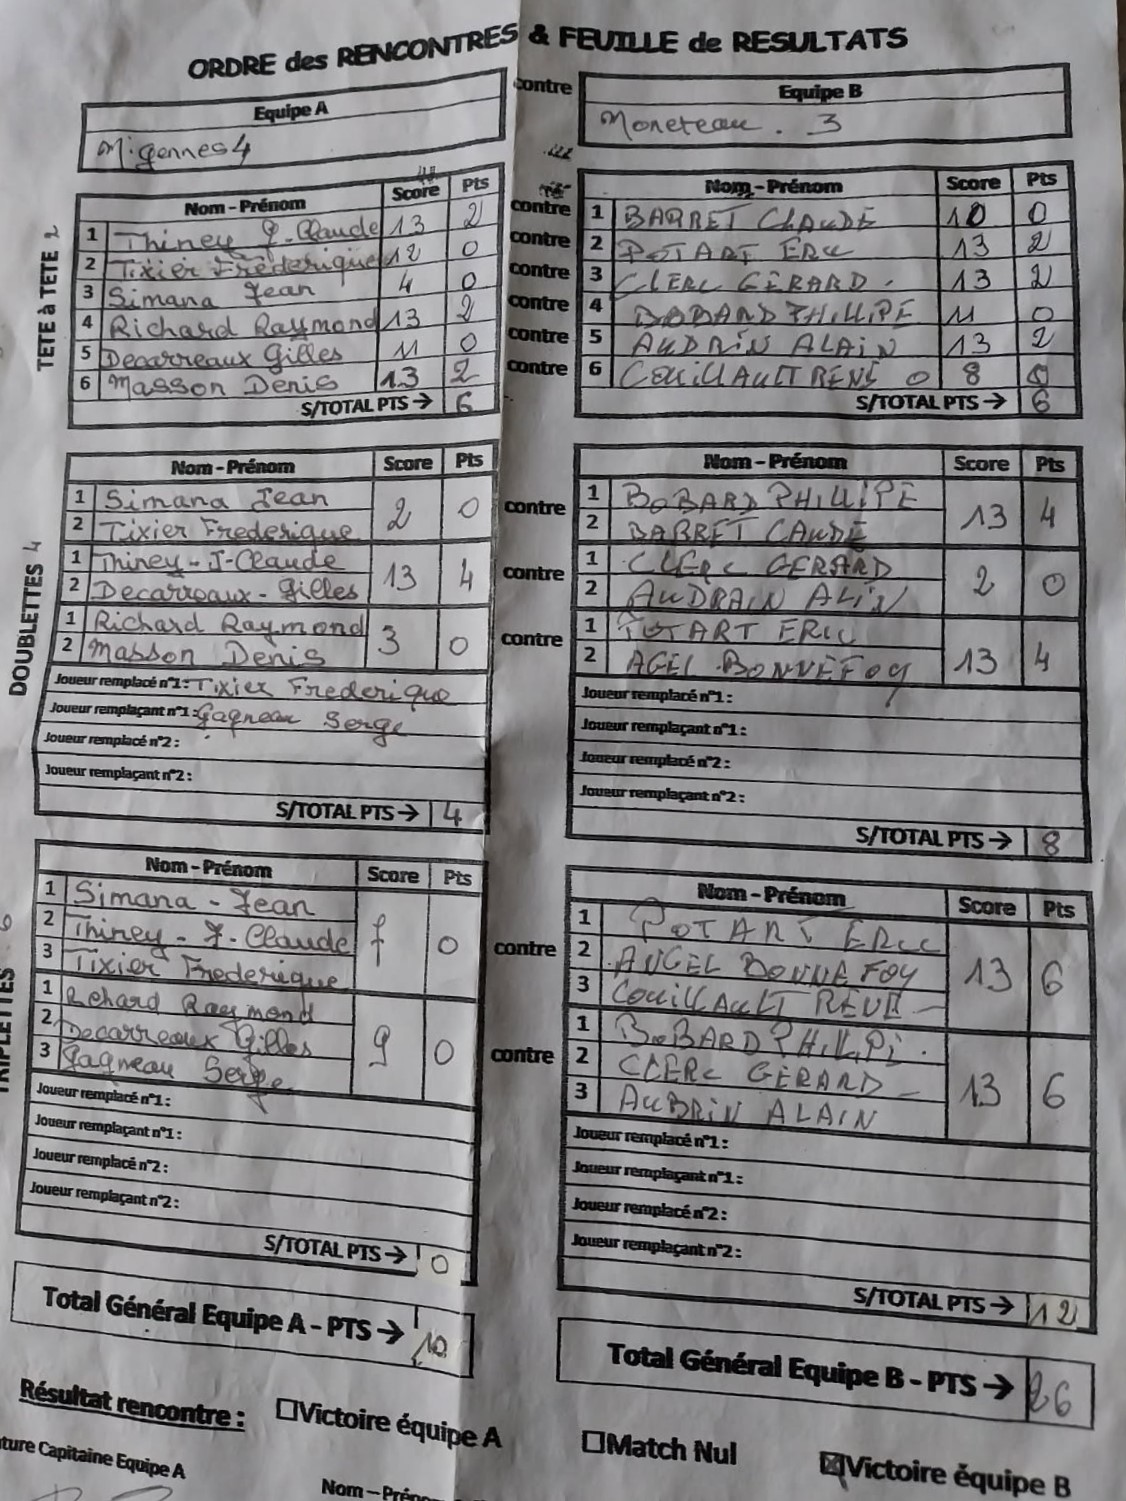 ORDRE des RENCONTRES & FEUILLE de RESULTATS
Equipe A
contre
Equipe B
Migennes 4
Moneteau . 3
TETE à TETE 2
Nom - Prénom Score Pts
Nom - Prénom Score Pts
1 Thiney J. Claude 13 2 contre 1 BARRET CLAUDE 10 0
2 Tixier Frederique 12 0 contre 2 POTART ERIC 13 2
3 Simana Jean 4 0 contre 3 CLERC GÈRARD . 13 2
4 Richard Raymond 13 2 contre 4 BOBARD PHILLIPE 11 0
5 Decarreaux Gilles 11 0 contre 5 AUDRIN ALAIN 13 2
6 Masson Denis 13 2 contre 6 COUILLAULT RENÉ 8 0
S/TOTAL PTS → 6
S/TOTAL PTS → 6
DOUBLETTES 4
Nom - Prénom Score Pts
Nom - Prénom Score Pts
1 Simana Jean
2 Tixier Frederique
2 0
contre
1 BOBARD PHILLIPE
2 BARRET CAUDE
13 4
1 Thiney - J-Claude
2 Decarreaux - Gilles
13 4
contre
1 CLERC GERARD
2 AUDRAIN ALIN
2 0
1 Richard Raymond
2 Masson Denis
3 0
contre
1 POTART ERIC
2 AGEL BONNEFOY
13 4
Joueur remplacé n°1: Tixier Frederique
Joueur remplaçant n°1: Gagneau Serge
Joueur remplacé n°2 :
Joueur remplaçant n°2 :
S/TOTAL PTS → 4
Joueur remplacé n°1 :
Joueur remplaçant n°1 :
Joueur remplacé n°2 :
Joueur remplaçant n°2 :
S/TOTAL PTS → 8
TRIPLETTES
Nom - Prénom Score Pts
Nom - Prénom Score Pts
1 Simana - Jean
2 Thiney - J. Claude
3 Tixier Frederique
0
contre
1 POTART ERIC
2 ANGEL BONNEFOY
3 COUILLAULT REUE
13 6
1 Rehard Raymond
2 Decarreaux Gilles
3 Gagneau Serge
9 0
contre
1 BOBARD PHILLIPI .
2 CLERC GÈRARD
3 AUBRIN ALAIN
13 6
Joueur remplacé n°1 :
Joueur remplaçant n°1 :
Joueur remplacé n°2 :
Joueur remplaçant n°2 :
S/TOTAL PTS → 0
Joueur remplacé n°1 :
Joueur remplaçant n°1 :
Joueur remplacé n°2 :
Joueur remplaçant n°2 :
S/TOTAL PTS → 12
Total Général Equipe A - PTS → 10
Total Général Equipe B - PTS → 26
Résultat rencontre : ☐Victoire équipe A ☐Match Nul ☒Victoire équipe B
ture Capitaine Equipe A
Nom - Préno